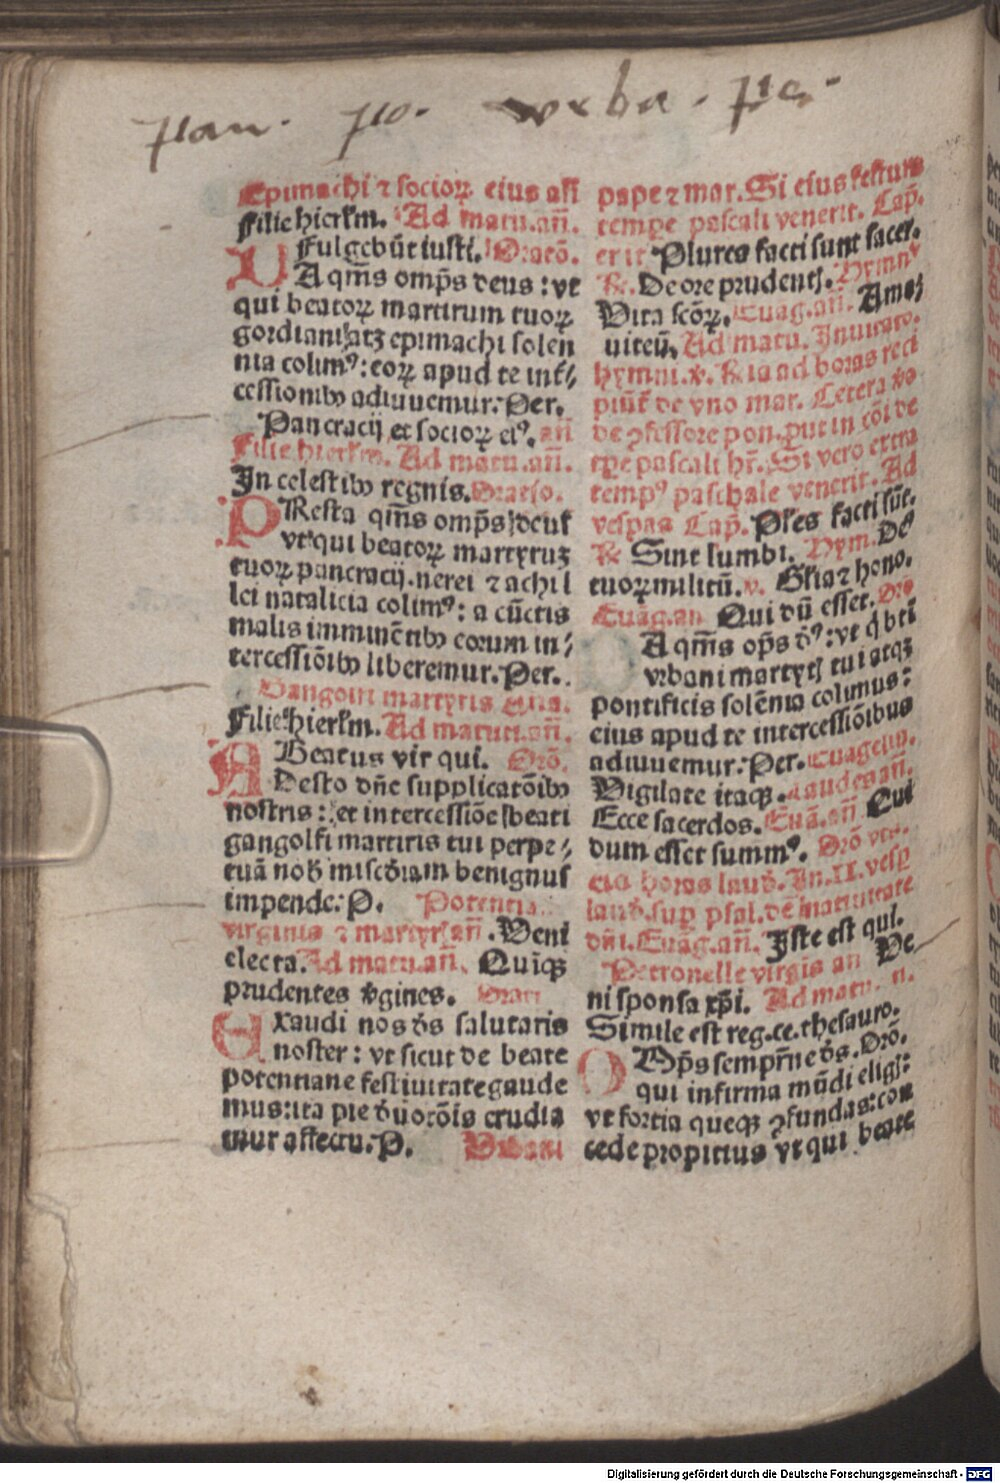 pan. po. vrba. pe.
Epimachi ⁊ socioꝝ eius añ
Filie hierłm. Ad matu. añ.
Fulgebūt iusti. Oratō.
DA qm̄s omp̄s deus: vt
qui beatoꝝ martirum tuoꝝ
gordiani atꝫ epimachi solen
nia colimꝰ: eoꝝ apud te int̄
cessionibꝰ adiuuemur. Per.
Pancracij et socioꝝ eiꝰ. añ
Filie hierłm. Ad matu. añ.
In celestibꝰ regnis. Oratio.
PResta qm̄s omp̄s deus
vt qui beatoꝝ martyruꝫ
tuoꝝ pancracij. nerei ⁊ achil
lei natalicia colimꝰ: a cūctis
malis imminētibꝰ eorum in⸗
tercessiōibꝰ liberemur. Per.
Gangolfi martyris añ.
Filie hierłm. Ad matuti. añ.
Beatus vir qui. Orō.
ADesto dn̄e supplicatōibꝰ
nostris: et intercessiōe beati
gangolfi martiris tui perpe⸗
tuā nob̄ misc̄diam benignus
impende: P. Potentia.
virginis ⁊ martyris añ. Veni
electa. Ad matu. añ. Quīqꝫ
prudentes v̄gines. Orati
EXaudi nos ds̄ salutaris
noster: vt sicut de beate
potentiane festiuitate gaude
mus: ita pie d̄uotōis erudia
mur affectu. P. Vrbani
pape ⁊ mar. Si eius festum
tempe pascali venerit. Cap̄.
erit Plures facti sunt sacer.
℟. De ore prudentꝭ. Hymnꝰ
Vita scōꝝ. Euāg. añ. Ama
uit eū. Ad matu. Inuitato.
hymni. ꝟ. ℟ia ad horas reci
piūt̄ de vno mar. Cetera v̄o
de ꝯfessore pon. ꝓut in cōi de
tꝑe pascali hr̄. Si vero extra
tempꝰ paschale venerit. Ad
vesꝑas Cap̄. Pl̄es facti sūt.
℟ Sint lumbi. Hym. Deꝰ
tuoꝝ militū. v. Gl̄ia ⁊ hono.
Euāg. an Qui dū esset. Orō
DA qm̄s op̄s d̄ꝰ: vt q̇ bt̄i
vrbani martyrꝭ tui atqꝫ
pontificis solēnia colimus:
eius apud te intercessiōibus
adiuuemur: Per. Euagelin.
Vigilate itaqꝫ. Laudes añ.
Ecce sacerdos. Euā. añ Qui
dum esset summꝰ. Orō vt s.
cia horas laud̄. In. II. vesꝑ
laud̄. suꝑ psal. de matutitate
dn̄i. Euāg. añ. Iste est qui.
Petronelle virgis an De
ni sponsa xp̄i. Ad matu. n.
Simile est reg. ce. thesauro.
OMp̄s sempr̄ne ds̄. Orō.
qui infirma mūdi eligꝭ:
vt fortia queqꝫ ꝯfundas: con
cede propitius vt qui beate
Digitalisierung gefördert durch die Deutsche Forschungsgemeinschaft - DFG